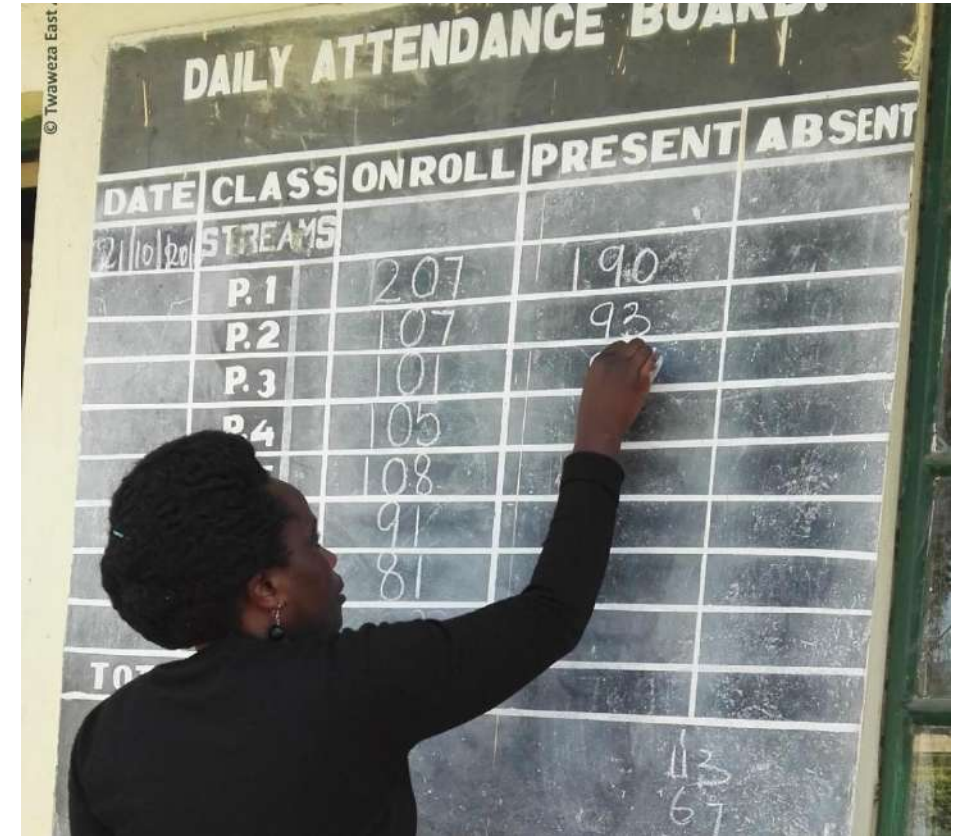 © Twaweza East
DAILY ATTENDANCE BOARD.
DATE CLASS ON ROLL PRESENT ABSENT
21/10/201 STREAMS
P.1 207 190
P.2 107 93
P.3 101
P.4 105
108
91
81
TOT
113
67